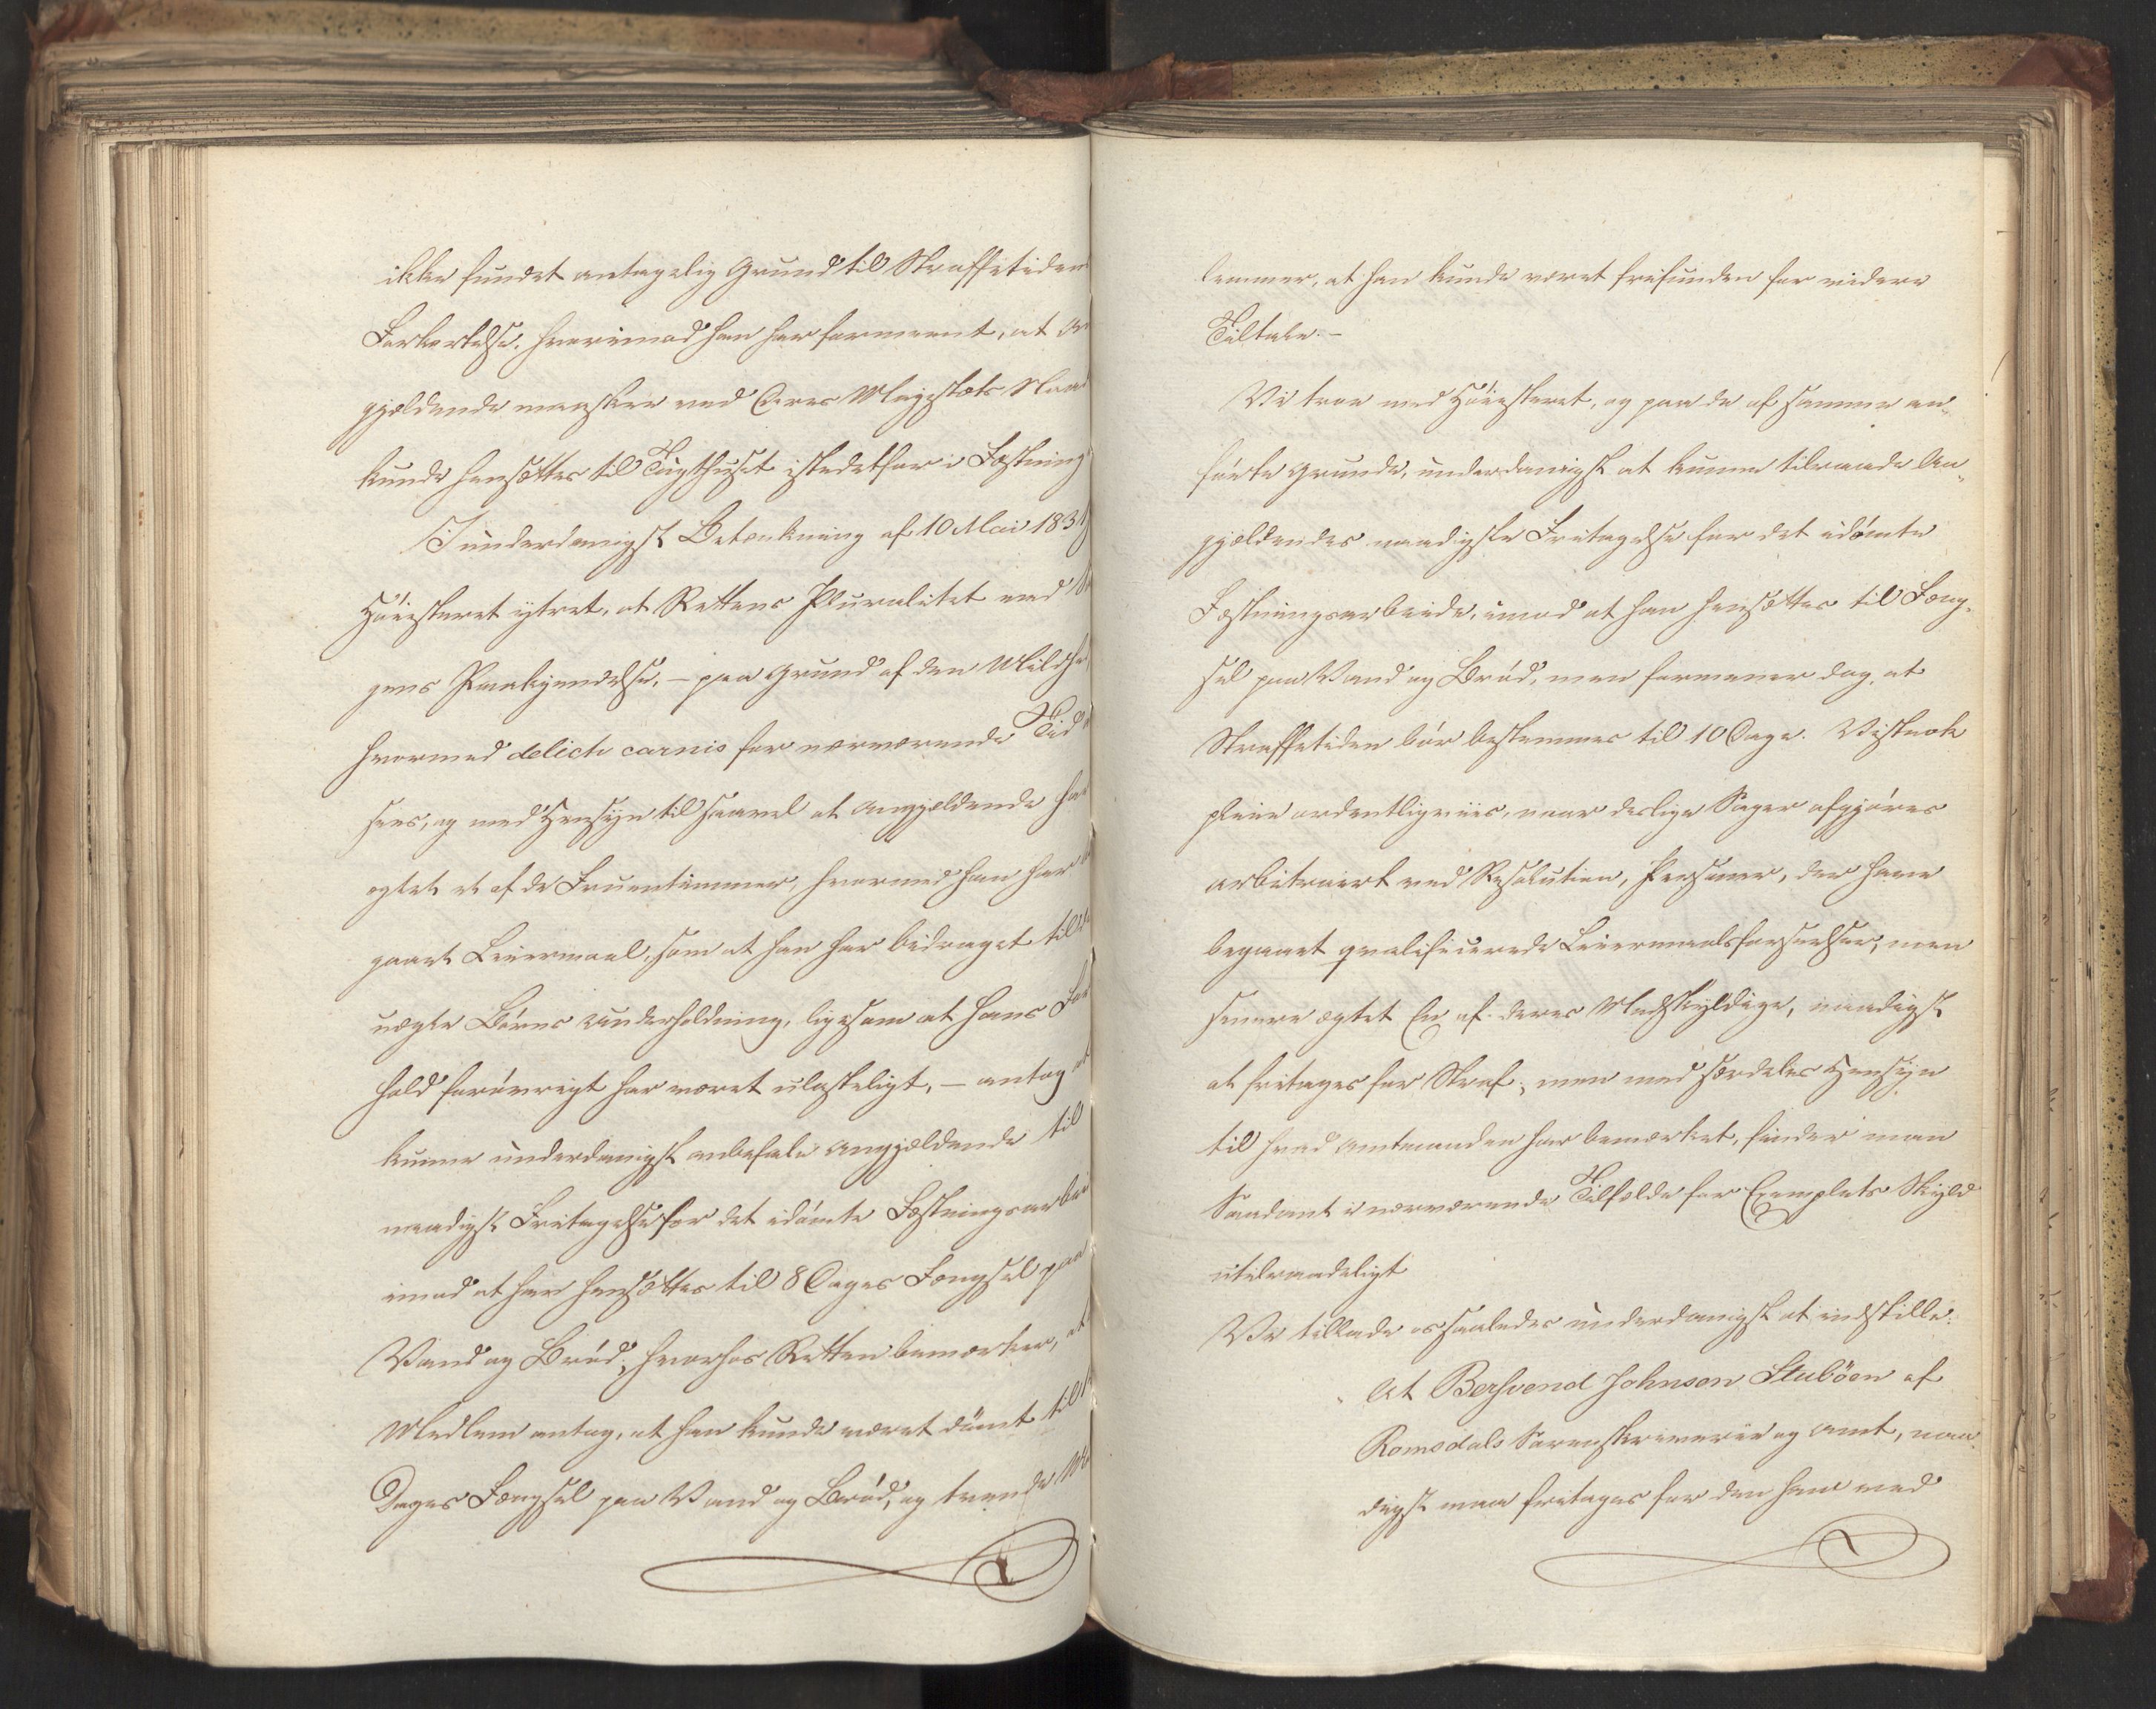 ikke fundet antagelig Grund til Straffetiden
Forkortelse, hvorimod han har formeent, at An
gjældende maaskee ved Deres Majestæts Naad
kunde hensættes til Tugthuset istedetfor i Fæstning
I underdanigst Betænkning af 10 Mai 183
Høiesteret ytret, at Rettens Pluralitet ved
gens Paakjendelse, – paa Grund af den Mildhe
hvormed delicta carnis for nærværende Tid
sees, og med Hensyn til saavel at Angjældende ha
ægtet et af de Fruentimmer, hvormed han har
gaaet Leiermaal, som at han har bidraget til
uægte Børns Underholdning, ligesom at hans For
hold forøvrigt har været ulasteligt, – antog at
kunne underdanigst anbefale Angjældende til
naadigst Fritagelse for det idømte Fæstningsarbei
imod at han hensættes til 8 Dages Fængsel paa
Vand og Brød; hvorhos Retten bemærker, at
Medlem antog, at han kunde været dømt til
Dages Fængsel paa Vand og Brød, og trende Me
lemmer, at han kunde været frifunden for videre
Tiltale. –
Vi troe med Høiesteret, og paa de af samme an-
førte Grunde, underdanigst at kunne tilraade An-
gjældendes naadigste Fritagelse for det idømte
Fæstningsarbeide, imod at han hensættes til Fæng-
sel paa Vand og Brød, men formener dog, at
Straffetiden bør bestemmes til 10 Dage. Vistnok
pleie ordentligviis, naar deslige Sager afgjøres
arbitrairt ved Resolution, Personer, der have
begaaet qvalificerede Leiermaalsforseelser, men
senere ægtet En af deres Medskyldige, naadigst
at fritages for Straf; men med særdeles Hensyn
til hvad Amtmanden har bemærket, finder man
Saadant i nærværende Tilfælde for Exemplets Skyld
utilraadeligt
Vi tillade os saaledes underdanigst at indstille:
At Bersvend Johnsen Stubøen af
Romsdals Sorenskriverie og Amt, naa-
digst maa fritages for den ham ved